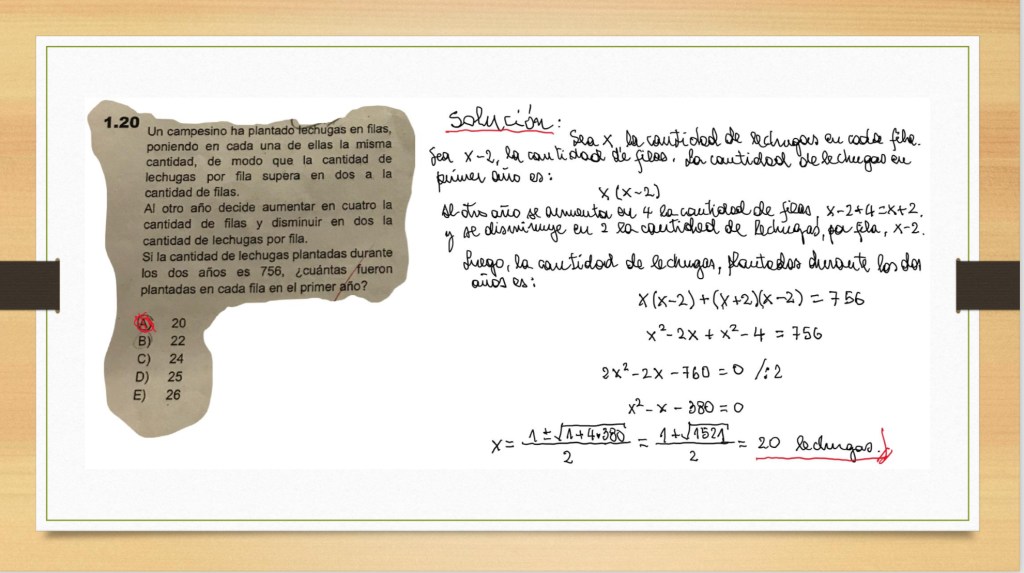 1.20
Un campesino ha plantado lechugas en filas,
poniendo en cada una de ellas la misma
cantidad, de modo que la cantidad de
lechugas por fila supera en dos a la
cantidad de filas.
Al otro año decide aumentar en cuatro la
cantidad de filas y disminuir en dos la
cantidad de lechugas por fila.
Si la cantidad de lechugas plantadas durante
los dos años es 756, ¿cuántas fueron
plantadas en cada fila en el primer año?
A) 20
B) 22
C) 24
D) 25
E) 26
Solución:
Sea x, la cantidad de lechugas en cada fila.
Sea x-2, la cantidad de filas. La cantidad de lechugas en
primer año es:
x(x-2)
Al otro año se aumenta en 4 la cantidad de filas, x-2+4=x+2.
y se disminuye en 2 la cantidad de lechugas, por fila, x-2.
Luego, la cantidad de lechugas, plantadas durante los dos
años es:
x(x-2)+(x+2)(x-2) = 756
x²-2x + x²-4 = 756
2x²-2x-760=0 /:2
x²-x-380=0
x= 1±√1+4•380 / 2 = 1+√1521 / 2 = 20 lechugas.